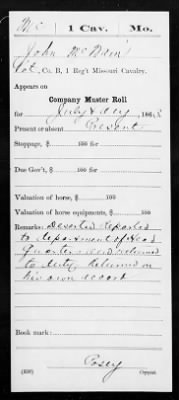 Mc | 1 Cav. | Mo.
John McDain
Pvt, Co. B, 1 Reg't Missouri Cavalry.
Appears on
Company Muster Roll
for July & Aug, 1863
Present or absent Present
Stoppage, $ 100 for
Due Gov't, $ 100 for
Valuation of horse, $ 100
Valuation of horse equipments, $ 100
Remarks: Deserted reported
to department of Head
Quarters and returned
to duty. Returned on
his own accort
Book mark:
Cosey
(358) Copyist.